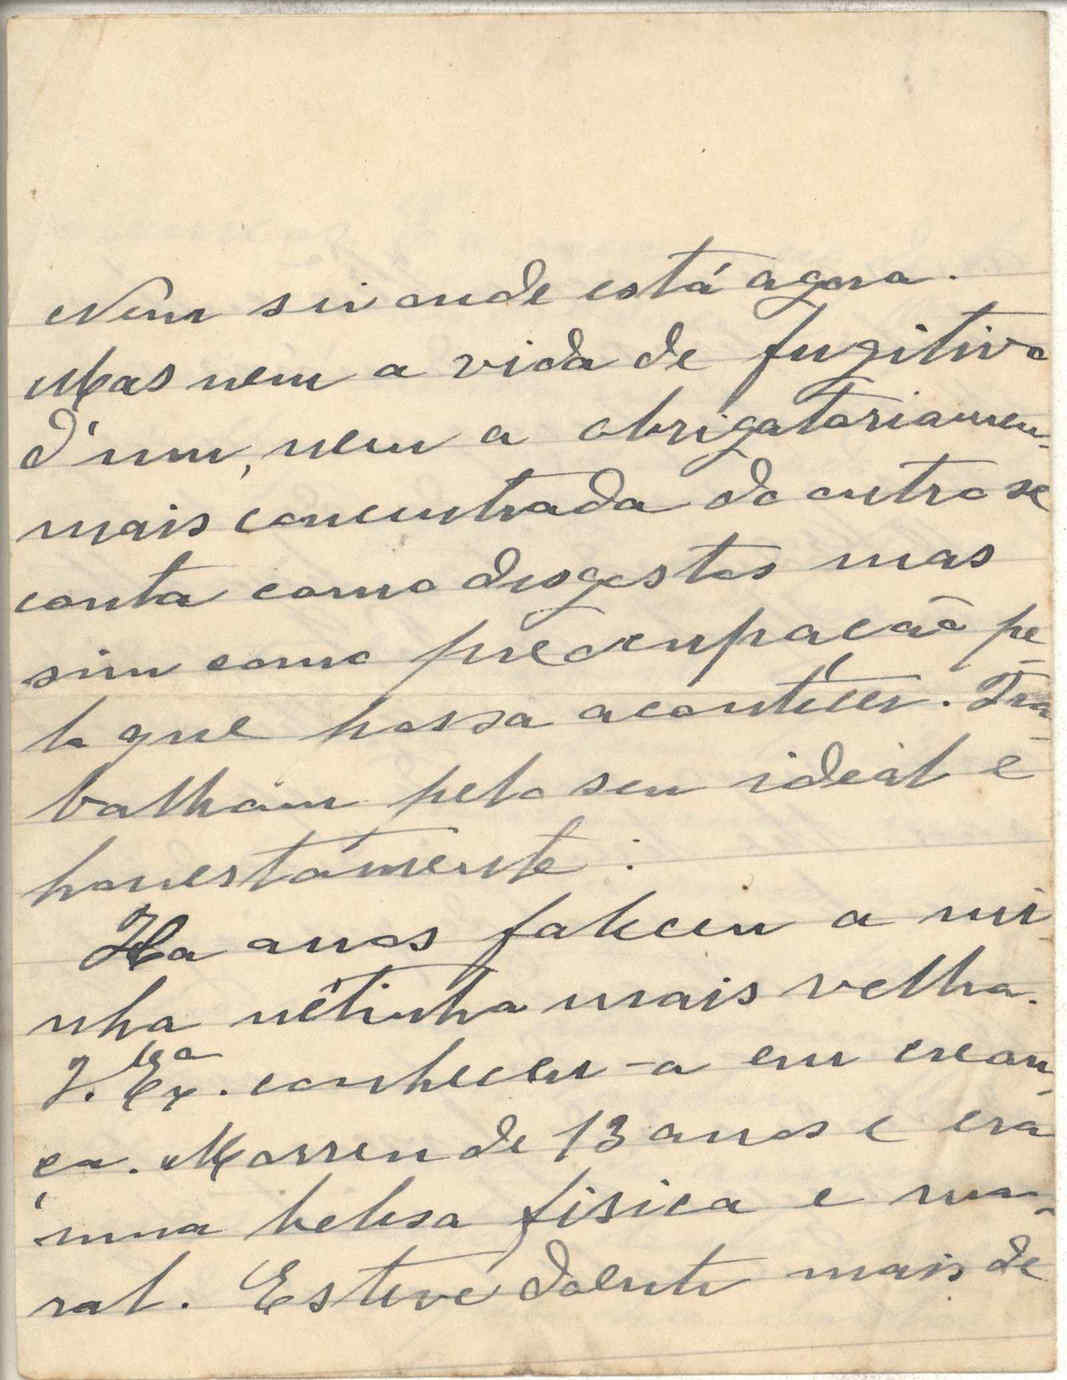 Nem sei onde está agora.
Mas nem a vida de fugitivo
d'um, nem a obrigatoriamen-
mais concentrada do outro se
conta como disgostos mas
sim como preocupação pe-
lo que possa acontecer. Tra-
balham pelo seu ideal e
honestamente.
Ha anos faleceu a mi
nha nêtinha mais velha.
V. Exª. conheceu-a em crean-
ça. Morreu de 13 anos e era
uma belesa fisica e mo-
ral. Esteve doente mais de